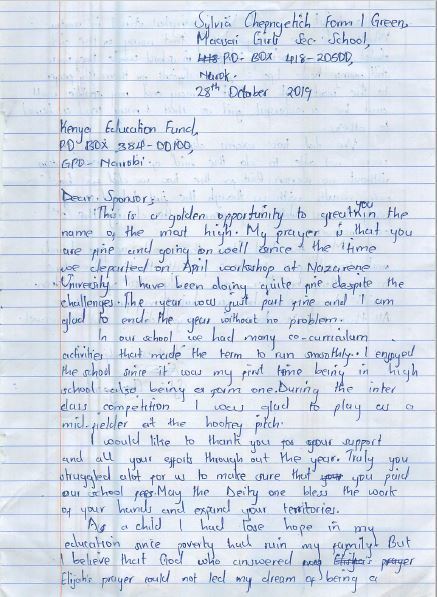 Sylvia Chepngetich Form 1 Green,
Maasai Girls Sec. School,
P.O- BOX 418-20500,
Narok.
28th October 2019
Kenya Education Fund,
P.O BOX 384-00100,
GPO- Nairobi.
Dear Sponsor;
This is a golden opportunity to great you in the
name of the most high. My prayer is that you
are fine and going on well since the time
we departed on April workshop at Nazarene
University. I have been doing quite fine despite the
challenges. The year was just part fine and I am
glad to end the year without no problem.
In our school we had many co-curriculum
activities that made the term to run smoothly. I enjoyed
the school since it was my first time being in high
school also being a form one. During the inter
class competition I was glad to play as a
mid-fielder at the hockey pitch.
I would like to thank you for your support
and all your efforts through out the year. Truly you
struggled alot for us to make sure that you paid
our school fees. May the Deity one bless the work
of your hands and expand your territories.
As a child I had lose hope in my
education since poverty had ruin my family. But
I believe that God who answered
Elijah's prayer could not led my dream of being a